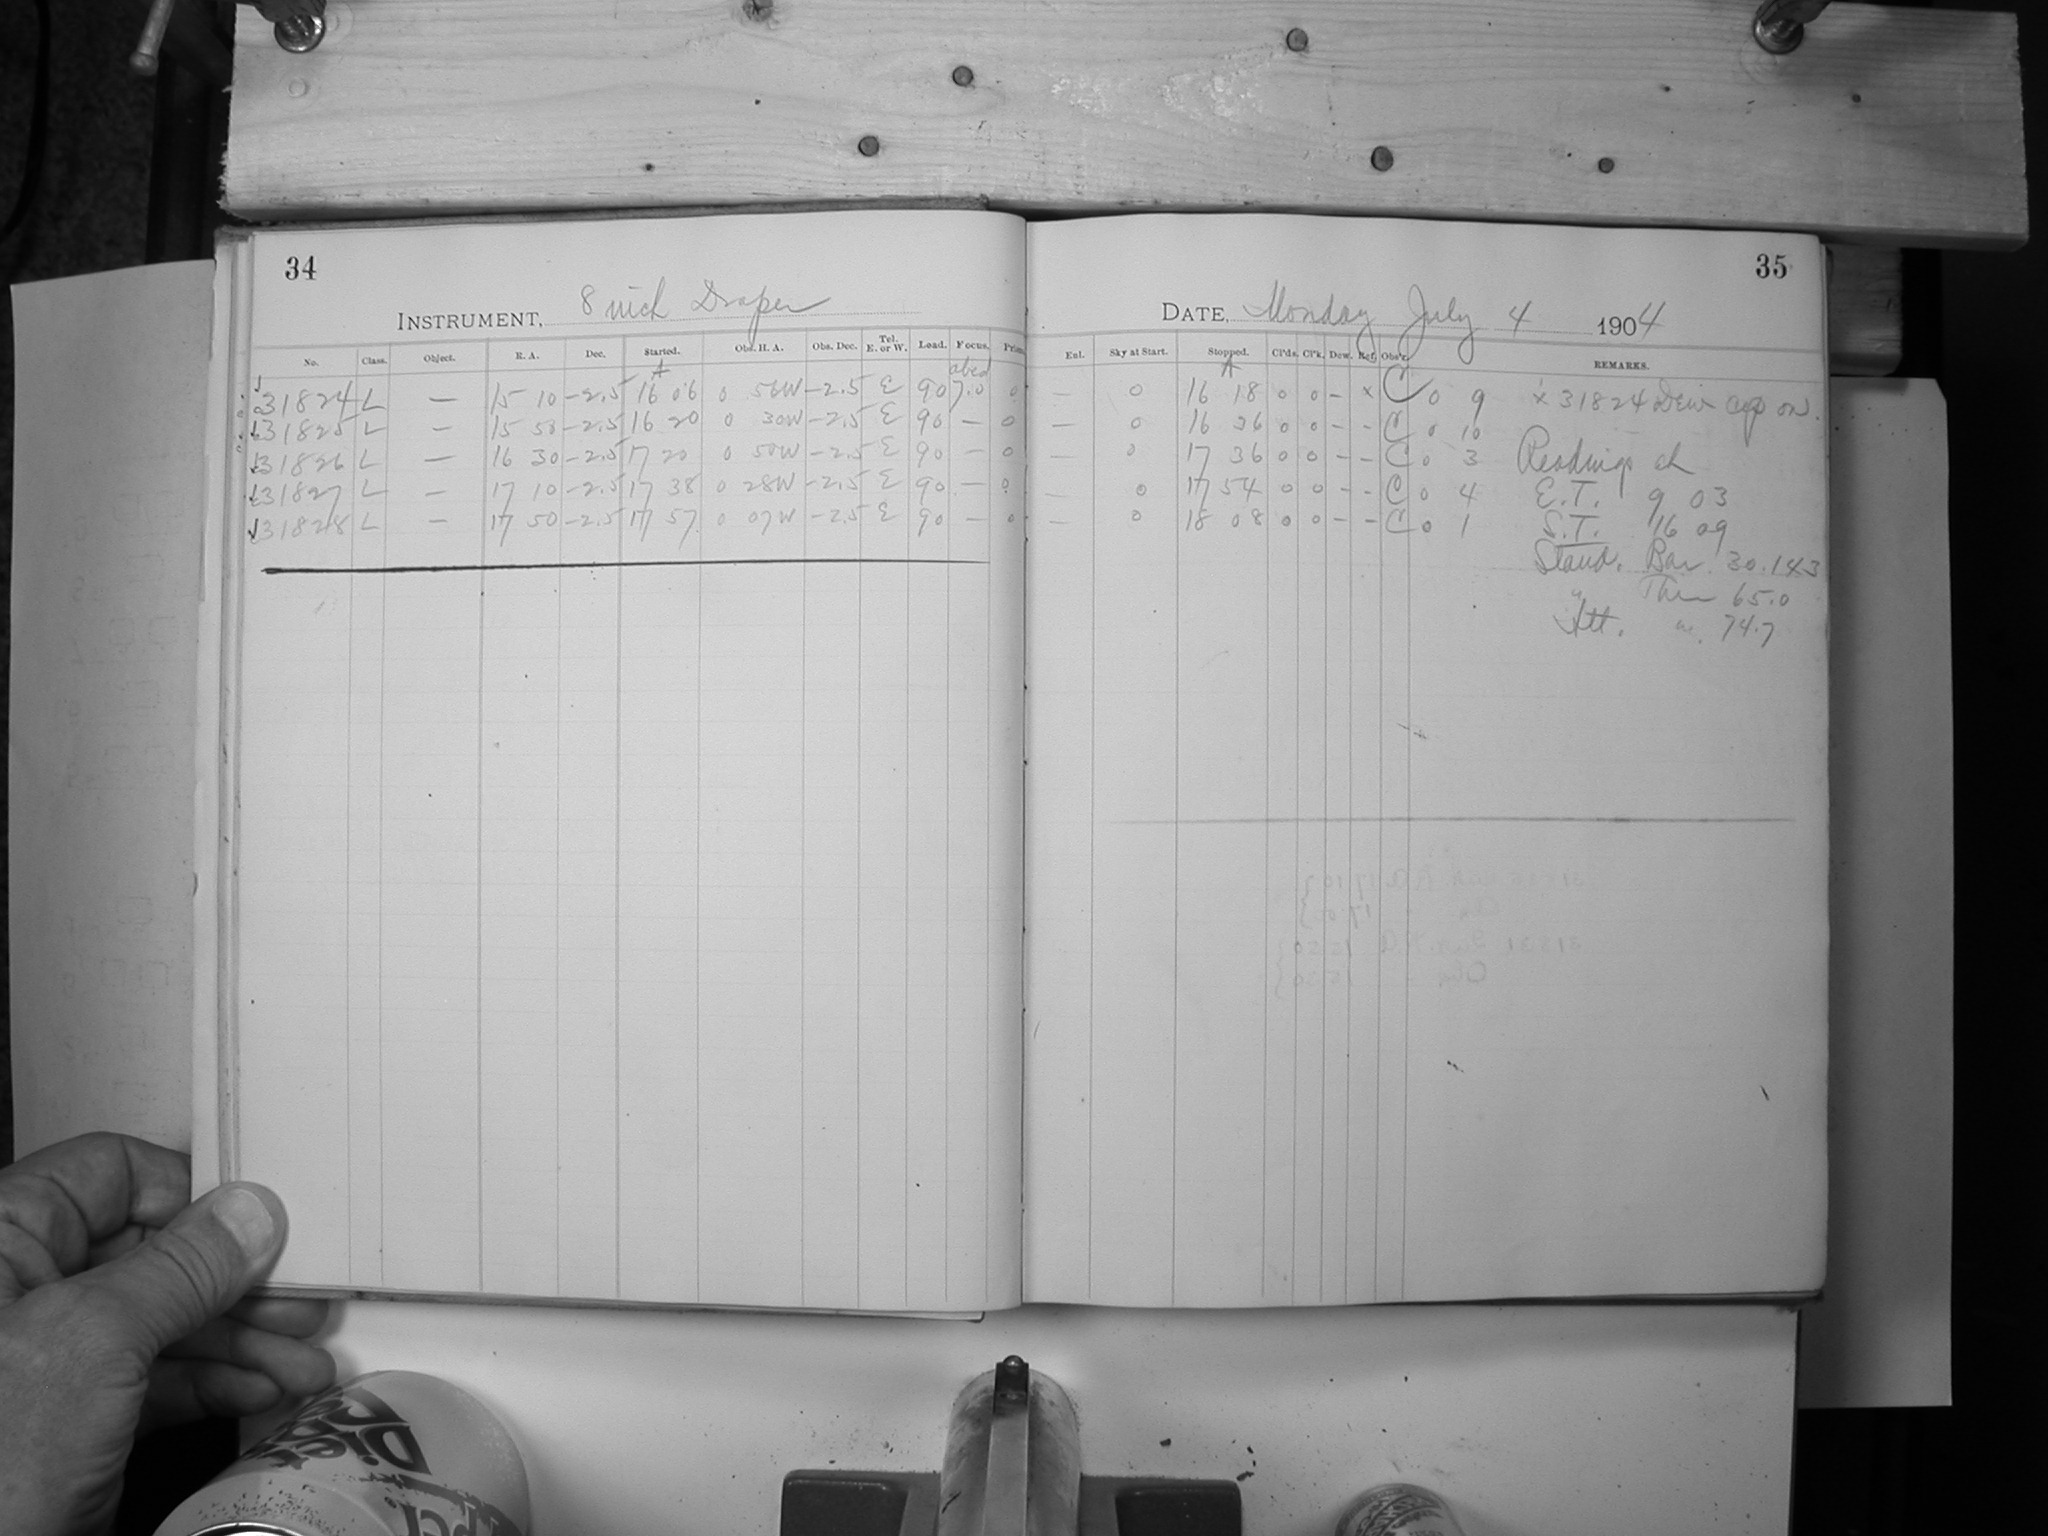 34
INSTRUMENT, 8 inch Draper
No. Class. Object. R. A. Dec. Started. Obs. H. A. Obs. Dec. Tel. E. or W. Load. Focus. Prism
A abcd
31824 L — 15 10 -2.5 16 06 0 56W -2.5 E 90 7.0 0
31825 L — 15 50 -2.5 16 20 0 30W -2.5 E 90 — 0
31826 L — 16 30 -2.5 17 20 0 50W -2.5 E 90 — 0
31827 L — 17 10 -2.5 17 38 0 28W -2.5 E 90 — 0
31828 L — 17 50 -2.5 17 57 0 07W -2.5 E 90 — 0
35
DATE, Monday July 4 1904
Enl. Sky at Start. Stopped. Cl'ds. Cl'k. Dew. Ref. Obs'r. REMARKS.
A
— 0 16 18 0 0 - x C 0 9 x 31824 Dew cap on.
— 0 16 36 0 0 - - C 0 10
— 0 17 36 0 0 - - C 0 3 Readings at
— 0 17 54 0 0 - - C 0 4 E.T. 9 03
— 0 18 08 0 0 - - C 0 1 S.T. 16 09
Stand. Bar. 30.143
" Ther 65.0
Att. " 74.7
Diet